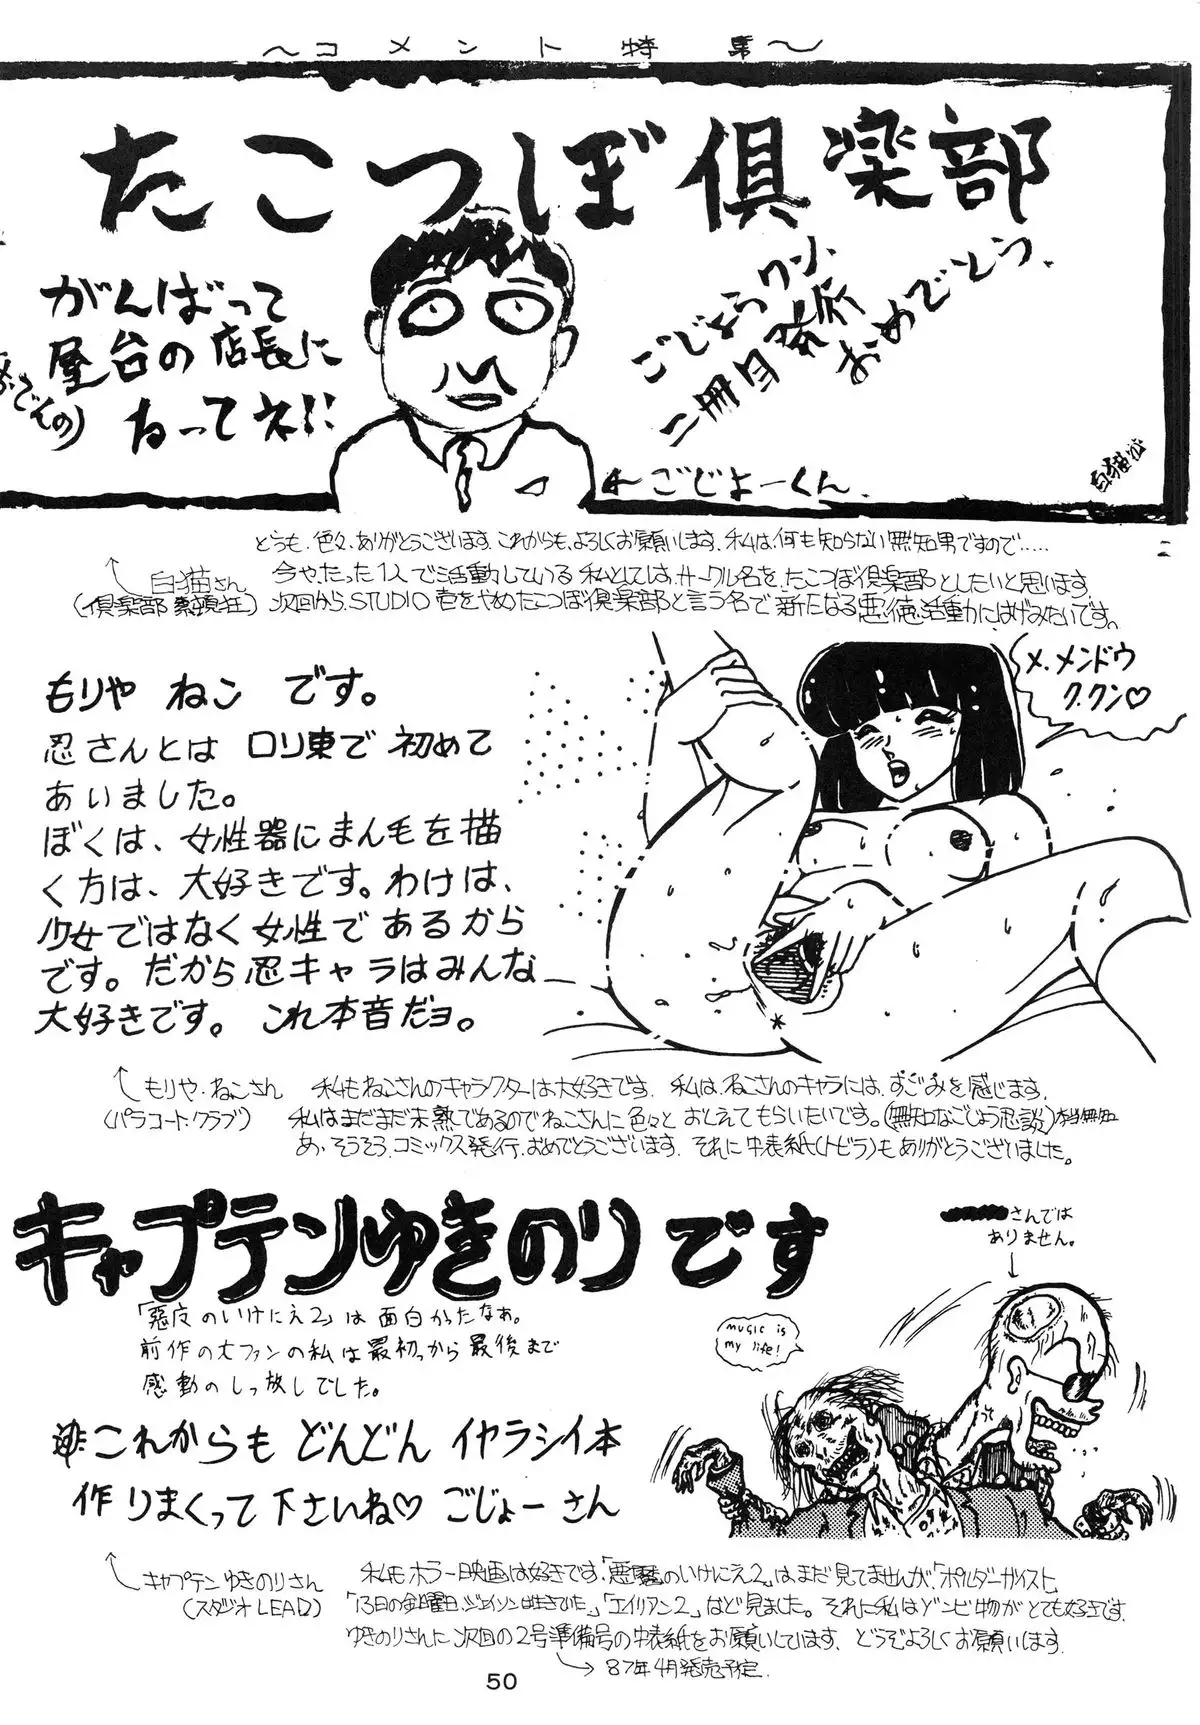 〜コメント特集〜
たこつぼ倶楽部
がんばって
屋台の店長に
なってネ!!
ごじょうクン、
二冊目発行
おめでとう、
←ごじょーくん、
どうも、色々、ありがとうございます。これからも、よろしくお願いします。私は、何も知らない無知男ですので‥‥‥
白猫さん
今や、たった1人で活動している私としては、サークル名を、たこつぼ倶楽部としたいと思います。
次回から、STUDIO壱をやめたこつぼ倶楽部と言う名で新たなる悪徳活動にはげみたいです。
もりや ねこ です。
忍さんとは ロリ東で 初めて
あいました。
ぼくは、女性器にまん毛を描
く方は、大好きです。わけは、
少女ではなく女性であるから
です。だから忍キャラはみんな
大好きです。これ本音だヨ。
もりや・ねこさん
(パラコート・クラブ)
私もねこさんのキャラクターは大好きです。私は、ねこさんのキャラには、すごみを感じます。
私はまだまだ未熟であるのでねこさんに色々とおしえてもらいたいです。(無知なごじょう忍談)
あ、そうそう、コミックス発行、おめでとうございます。それに中表紙(トビラ)もありがとうございました。
キャプテンゆきのりです
さんでは
ありません。
music is
my life!
「悪魔のいけにえ2」は面白かったなぁ。
前作の大ファンの私は最初っから最後まで
感動のしっ放しでした。
これからも どんどん イヤラシイ本
作りまくって下さいね♡ ごじょーさん
キャプテンゆきのりさん
(スタジオLEAD)
私もホラー映画は好きです。「悪魔のいけにえ2」はまだ見てませんが、「ポルターガイスト」、
「13日の金曜日、ジェイソンは生きていた」、「エイリアン2」、など見ました。それに私はゾンビ物がとても好きです。
ゆきのりさんに次回の2号準備号の中表紙をお願いしています。どうぞよろしくお願いします。
→87年4月発売予定
50